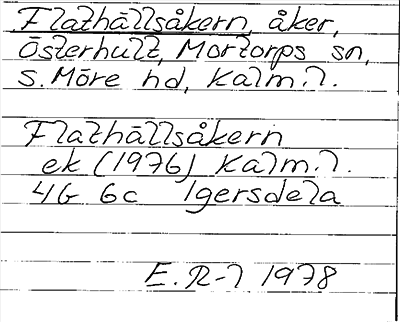 Flathällsåkern, åker,
Österhult, Mortorps sn,
S. Möre hd, Kalm. l.
Flathällsåkern
ek (1976) Kalm. l.
4G 6c Igersdela
E. R-l 1978